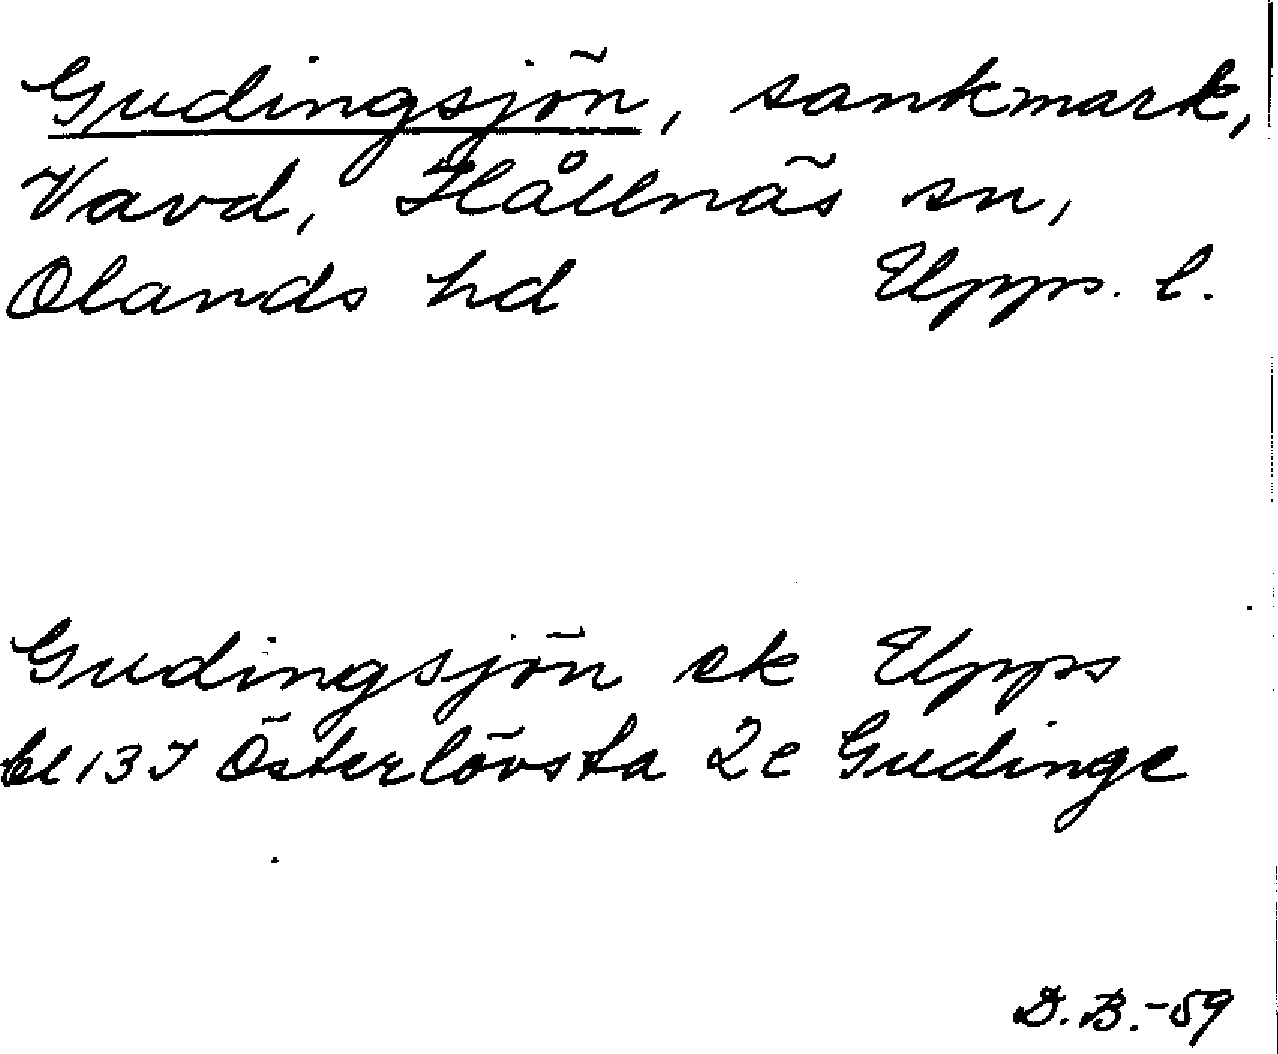 Gudingsjön, sankmark,
Vavd, Hållnäs sn,
Olands hd Upps. l.
Gudingsjön ek Upps
bl 13 I Österlövsta 2e Gudinge
D.B.-59